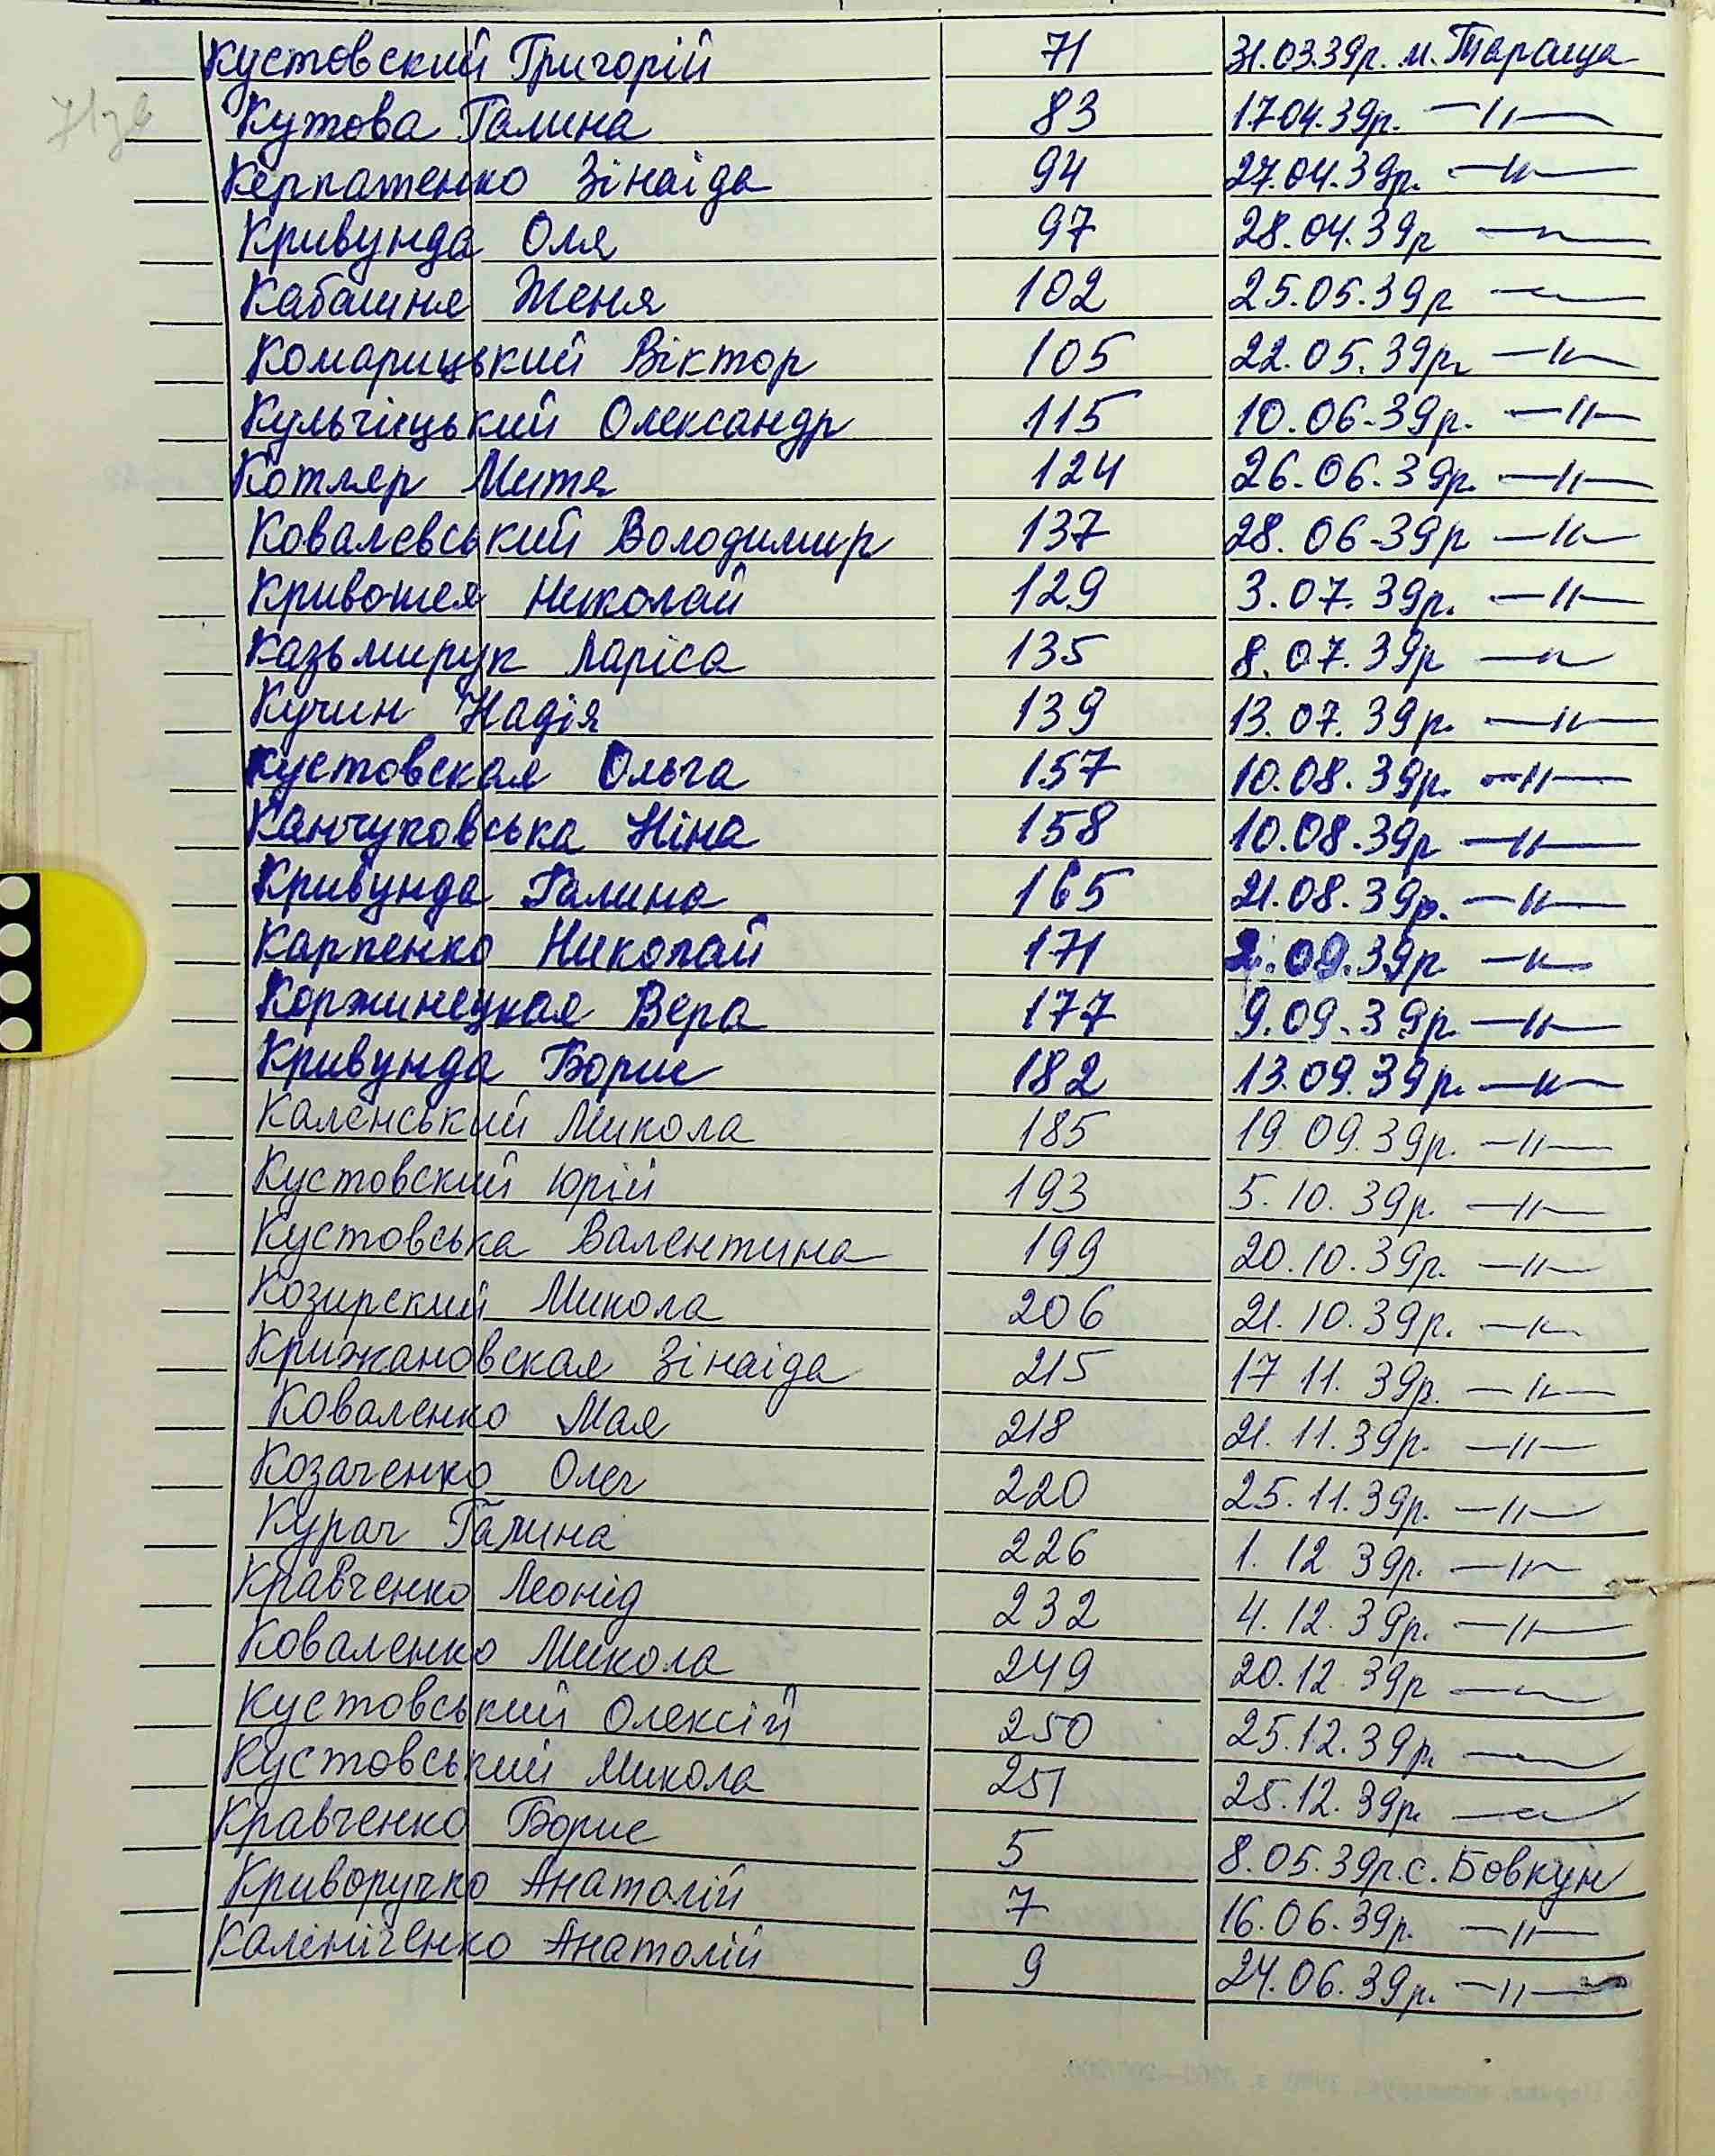 Кустовский Григорій 71 31.03.39р. м. Тараща
Кутова Галина 83 17.04.39р. —"—
Керпатенко Зінаіда 94 27.04.39р. —"—
Кривунда Оля 97 28.04.39р —"—
Кабашня Женя 102 25.05.39р —"—
Комарицький Віктор 105 22.05.39р. —"—
Кульчіцький Олександр 115 10.06.39р. —"—
Котляр Митя 124 26.06.39р. —"—
Ковалевський Володимир 137 28.06.39р —"—
Кривошея Николай 129 3.07.39р. —"—
Казьмирук Ларіса 135 8.07.39р —"—
Кучин Надія 139 13.07.39р. —"—
Кустовская Ольга 157 10.08.39р. —"—
Канчуковська Ніна 158 10.08.39р —"—
Кривунда Галина 165 21.08.39р. —"—
Карпенко Николай 171 2.09.39р —"—
Коржинецкая Вера 177 9.09.39р. —"—
Кривунда Борис 182 13.09.39р. —"—
Каленський Микола 185 19.09.39р. —"—
Кустовский Юрій 193 5.10.39р. —"—
Кустовська Валентина 199 20.10.39р. —"—
Козирский Микола 206 21.10.39р. —"—
Крижановская Зінаіда 215 17 11.39р. —"—
Коваленко Мая 218 21.11.39р. —"—
Козаченко Олег 220 25.11.39р. —"—
Курач Галина 226 1.12 39р. —"—
Кравченко Леонід 232 4.12.39р. —"—
Коваленко Микола 249 20.12.39р —"—
Кустовський Олексій 250 25.12.39р. —"—
Кустовський Микола 251 25.12.39р. —"—
Кравченко Борис 5 8.05.39р.с. Бовкун
Криворучко Анатолій 7 16.06.39р. —"—
Калініченко Анатолій 9 24.06.39р. —"—